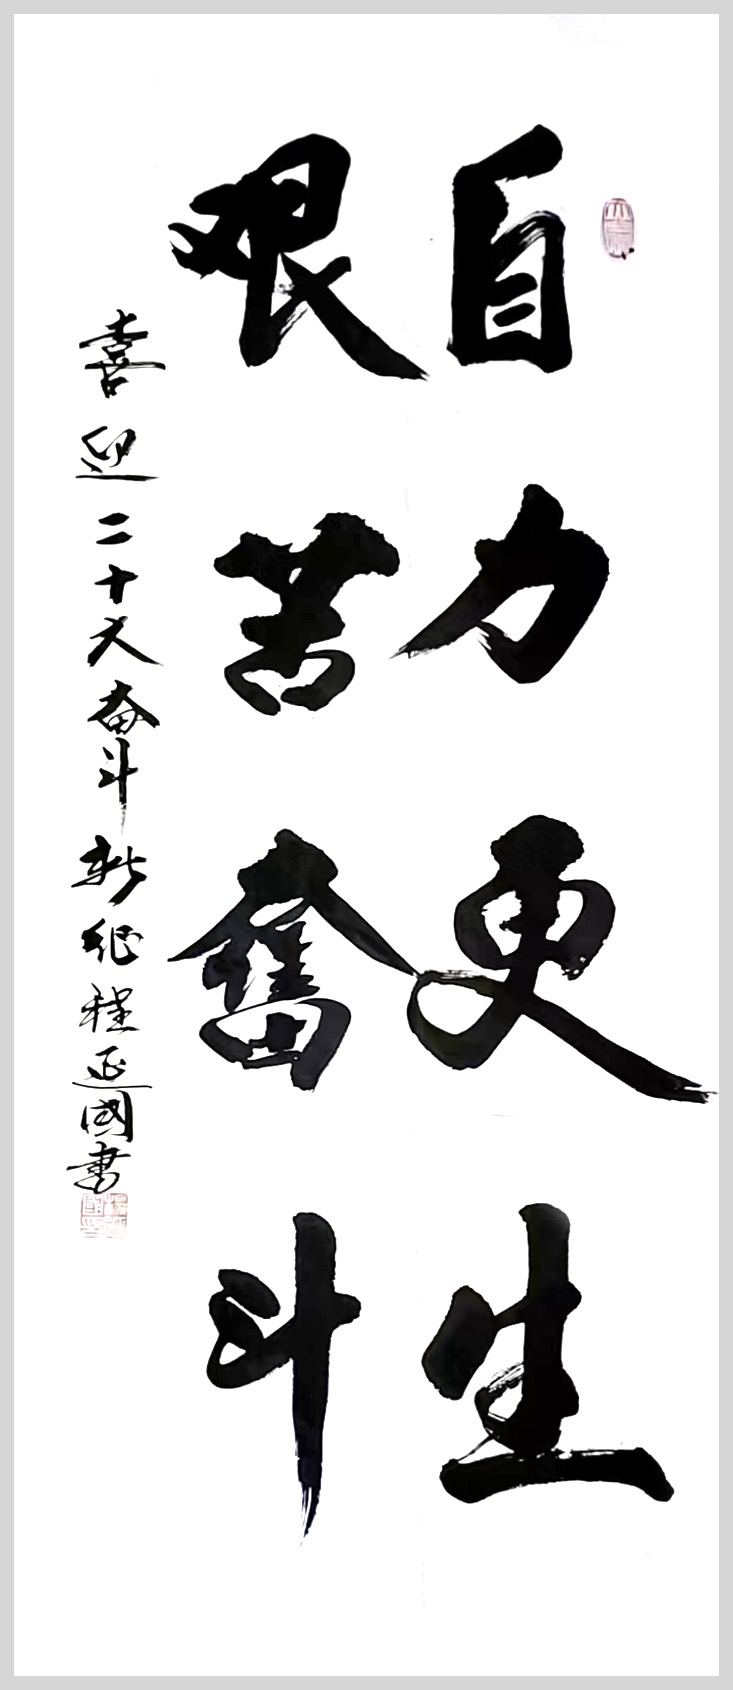 自力更生
艰苦奮斗
喜迎二十大奋斗新征程延國书